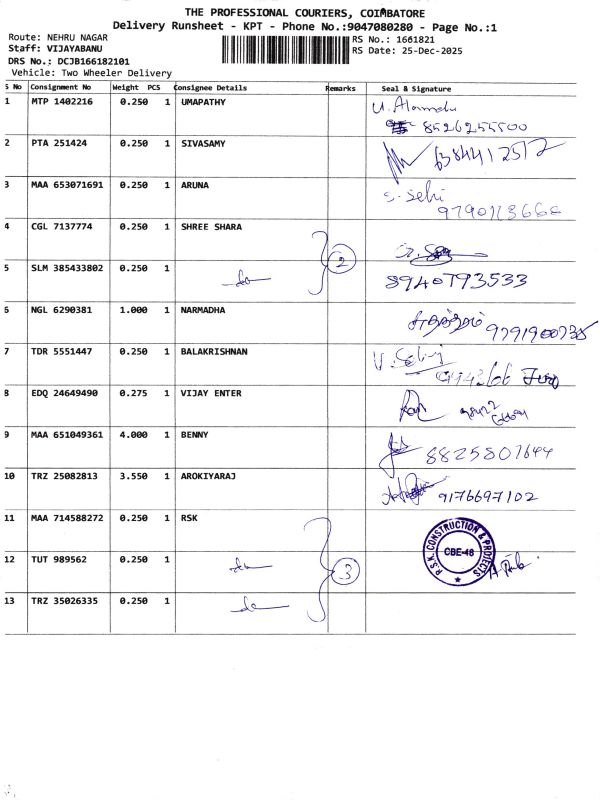 THE PROFESSIONAL COURIERS, COIMBATORE
Delivery Runsheet - KPT - Phone No.:9047080280 - Page No.:1
Route: NEHRU NAGAR
RS No.: 1661821
Staff: VIJAYABANU
RS Date: 25-Dec-2025
DRS No.: DCJB166182101
Vehicle: Two Wheeler Delivery
S No Consignment No Weight PCS Consignee Details Remarks Seal & Signature
1 MTP 1402216 0.250 1 UMAPATHY
8526255500
2 PTA 251424 0.250 1 SIVASAMY
6384412517
3 MAA 653071691 0.250 1 ARUNA S. Selvi
9790113666
4 CGL 7137774 0.250 1 SHREE SHARA
2
5 SLM 385433802 0.250 1 do 8940793533
6 NGL 6290381 1.000 1 NARMADHA
7 TDR 5551447 0.250 1 BALAKRISHNAN
8 EDQ 24649490 0.275 1 VIJAY ENTER
9 MAA 651049361 4.000 1 BENNY 8825807644
10 TRZ 25082813 3.550 1 AROKIYARAJ 9176697102
11 MAA 714588272 0.250 1 RSK
R.S.K. CONSTRUCTION & PROJECTS
CBE-48
12 TUT 989562 0.250 1 do 3
13 TRZ 35026335 0.250 1 do